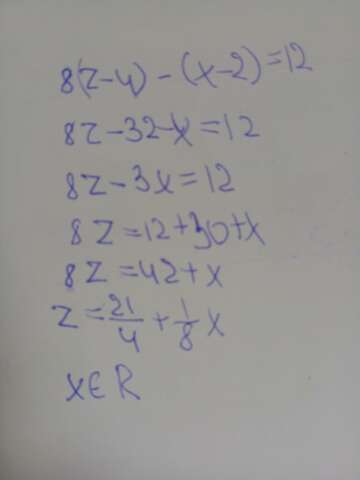 8(z-4)-(x-2)=12
8z-32-x=12
8z-3x=12
8z=12+30+x
8z=42+x
z=21/4+1/8x
x∈R